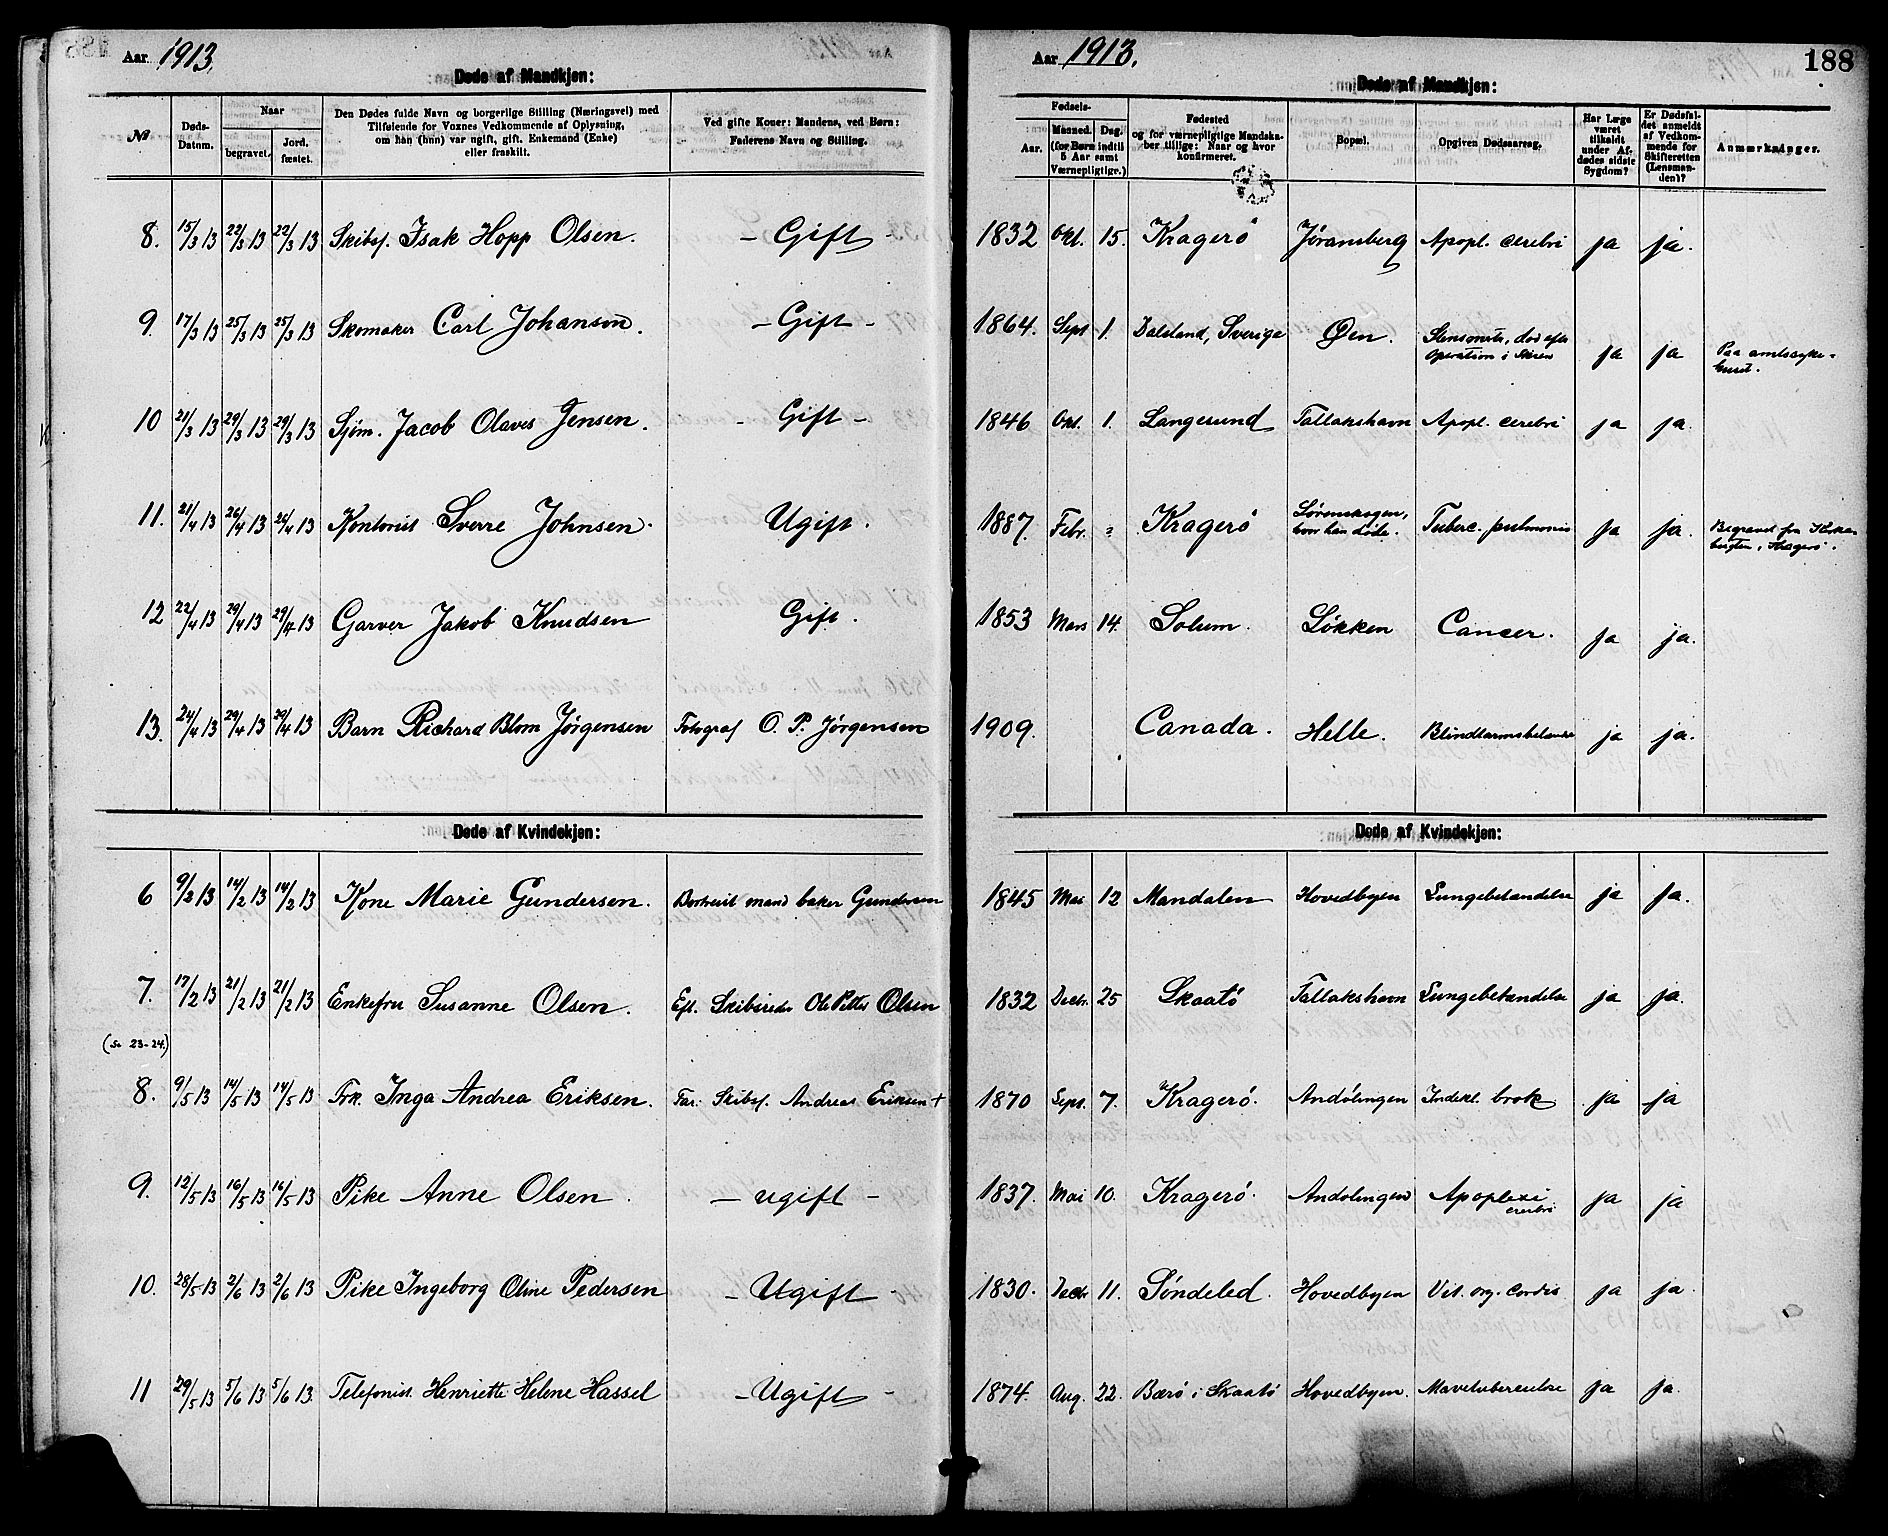 Aar 1913.
Døde af Mandkjøn:
№
Døds-Datum.
Naar
begravet.
Jord-fæstet.
Den Dødes fulde Navn og borgerlige Stilling (Næringsvei) med
Tilføiende for Voxnes Vedkommende af Oplysning,
om han (hun) var ugift, gift, Enkemand (Enke)
eller fraskilt.
Ved gifte Koner: Mandens, ved Børn:
Faderens Navn og Stilling.
8. 15/3 13 22/3 13 22/3 13 Skibsf. Isak Hopp Olsen. - Gift -
9. 17/3 13 25/3 13 25/3 13 Skomaker Carl Johanson. - Gift -
10 21/3 13 29/3 13 29/3 13 Sjøm. Jacob Olaves Jensen. - Gift -
11. 21/4 13 26/4 13 26/4 13 Kontorist Sverre Johnsen. Ugift.
12 22/4 13 29/4 13 29/4 13 Garver Jakob Knudsen Gift.
13. 24/4 13 29/4 13 29/4 13 Barn Richard Blom Jørgensen Fotograf O. P. Jørgensen
Døde af Kvindekjøn:
6 9/2 13 14/2 13 14/2 13 Kone Marie Gundersen. Bortreist mand baker Gundersen
7. 17/2 13 21/2 13 21/2 13 Enkefru Susanne Olsen. Eft. Skibsreder Ole Petter Olsen
(Se 23-24.)
8. 9/5 13 14/5 13 14/5 13 Frk. Inga Andrea Eriksen. Far: Skibsf. Andreas Eriksen +
9. 12/5 13 16/5 13 16/5 13 Pike Anne Olsen. - ugift -
10. 28/5 13 2/6 13 2/6 13 Pike Ingeborg Oline Pedersen - Ugift -
11 29/5 13 5/6 13 5/6 13. Telefonist. Henriette Helene Hassel - Ugift -
Aar 1913.
188
Døde af Mandkjøn:
Fødsels-
Aar.
Maaned. Dag.
(for Børn indtil
5 Aar samt
Værnepligtige.)
Fødested
og for værnepligtige Mandska-
ber tillige: Naar og hvor
konfirmeret.
Bopæl.
Opgiven Dødsaarsag.
Har Læge
været
tilkaldt
under Af-
dødes sidste
Sygdom?
Er Dødsfal-
det anmeldt
af Vedkom-
mende for
Skifteretten
(Lensman-
den)?
Anmærkninger.
1832 Okt. 15. Kragerö Jøransberg Apopl. cerebri ja ja.
1864. Sept 1. Dalsland, Sverige Øen. død efter
operation i Skien ja ja Paa amtssyke-
huset.
1846 Okt. 1. Langesund Tallakshavn Apopl. cerebri ja ja.
1887. Febr. Kragerö
hvor han døde. Tuberc. pulmonis ja ja. Begravet fra
Kragerö.
1853 Mars 14. Solum. Løkken Cancer. ja ja.
1909. Canada. Helle. Blindtarmsbetændelse ja ja.
Døde af Kvindekjøn:
1845 Mai 12 Mandalen Hovedbyen Lungebetændelse ja ja.
1832 Decbr. 25 Skaatö Tallakshavn Lungebetændelse ja ja.
1870 Sept. 7. Kragerö. Andölingen Indekl. brok ja ja
1837. Mai 10. Kragerö. Andölingen Apoplexi
cerebri ja ja
1830. Decbr 11. Söndeled. Hovedbyen Vit. org. cordis ja ja.
1874. Aug. 22. Bærö i Skaatö Hovedbyen. Mavetuberculose ja ja.